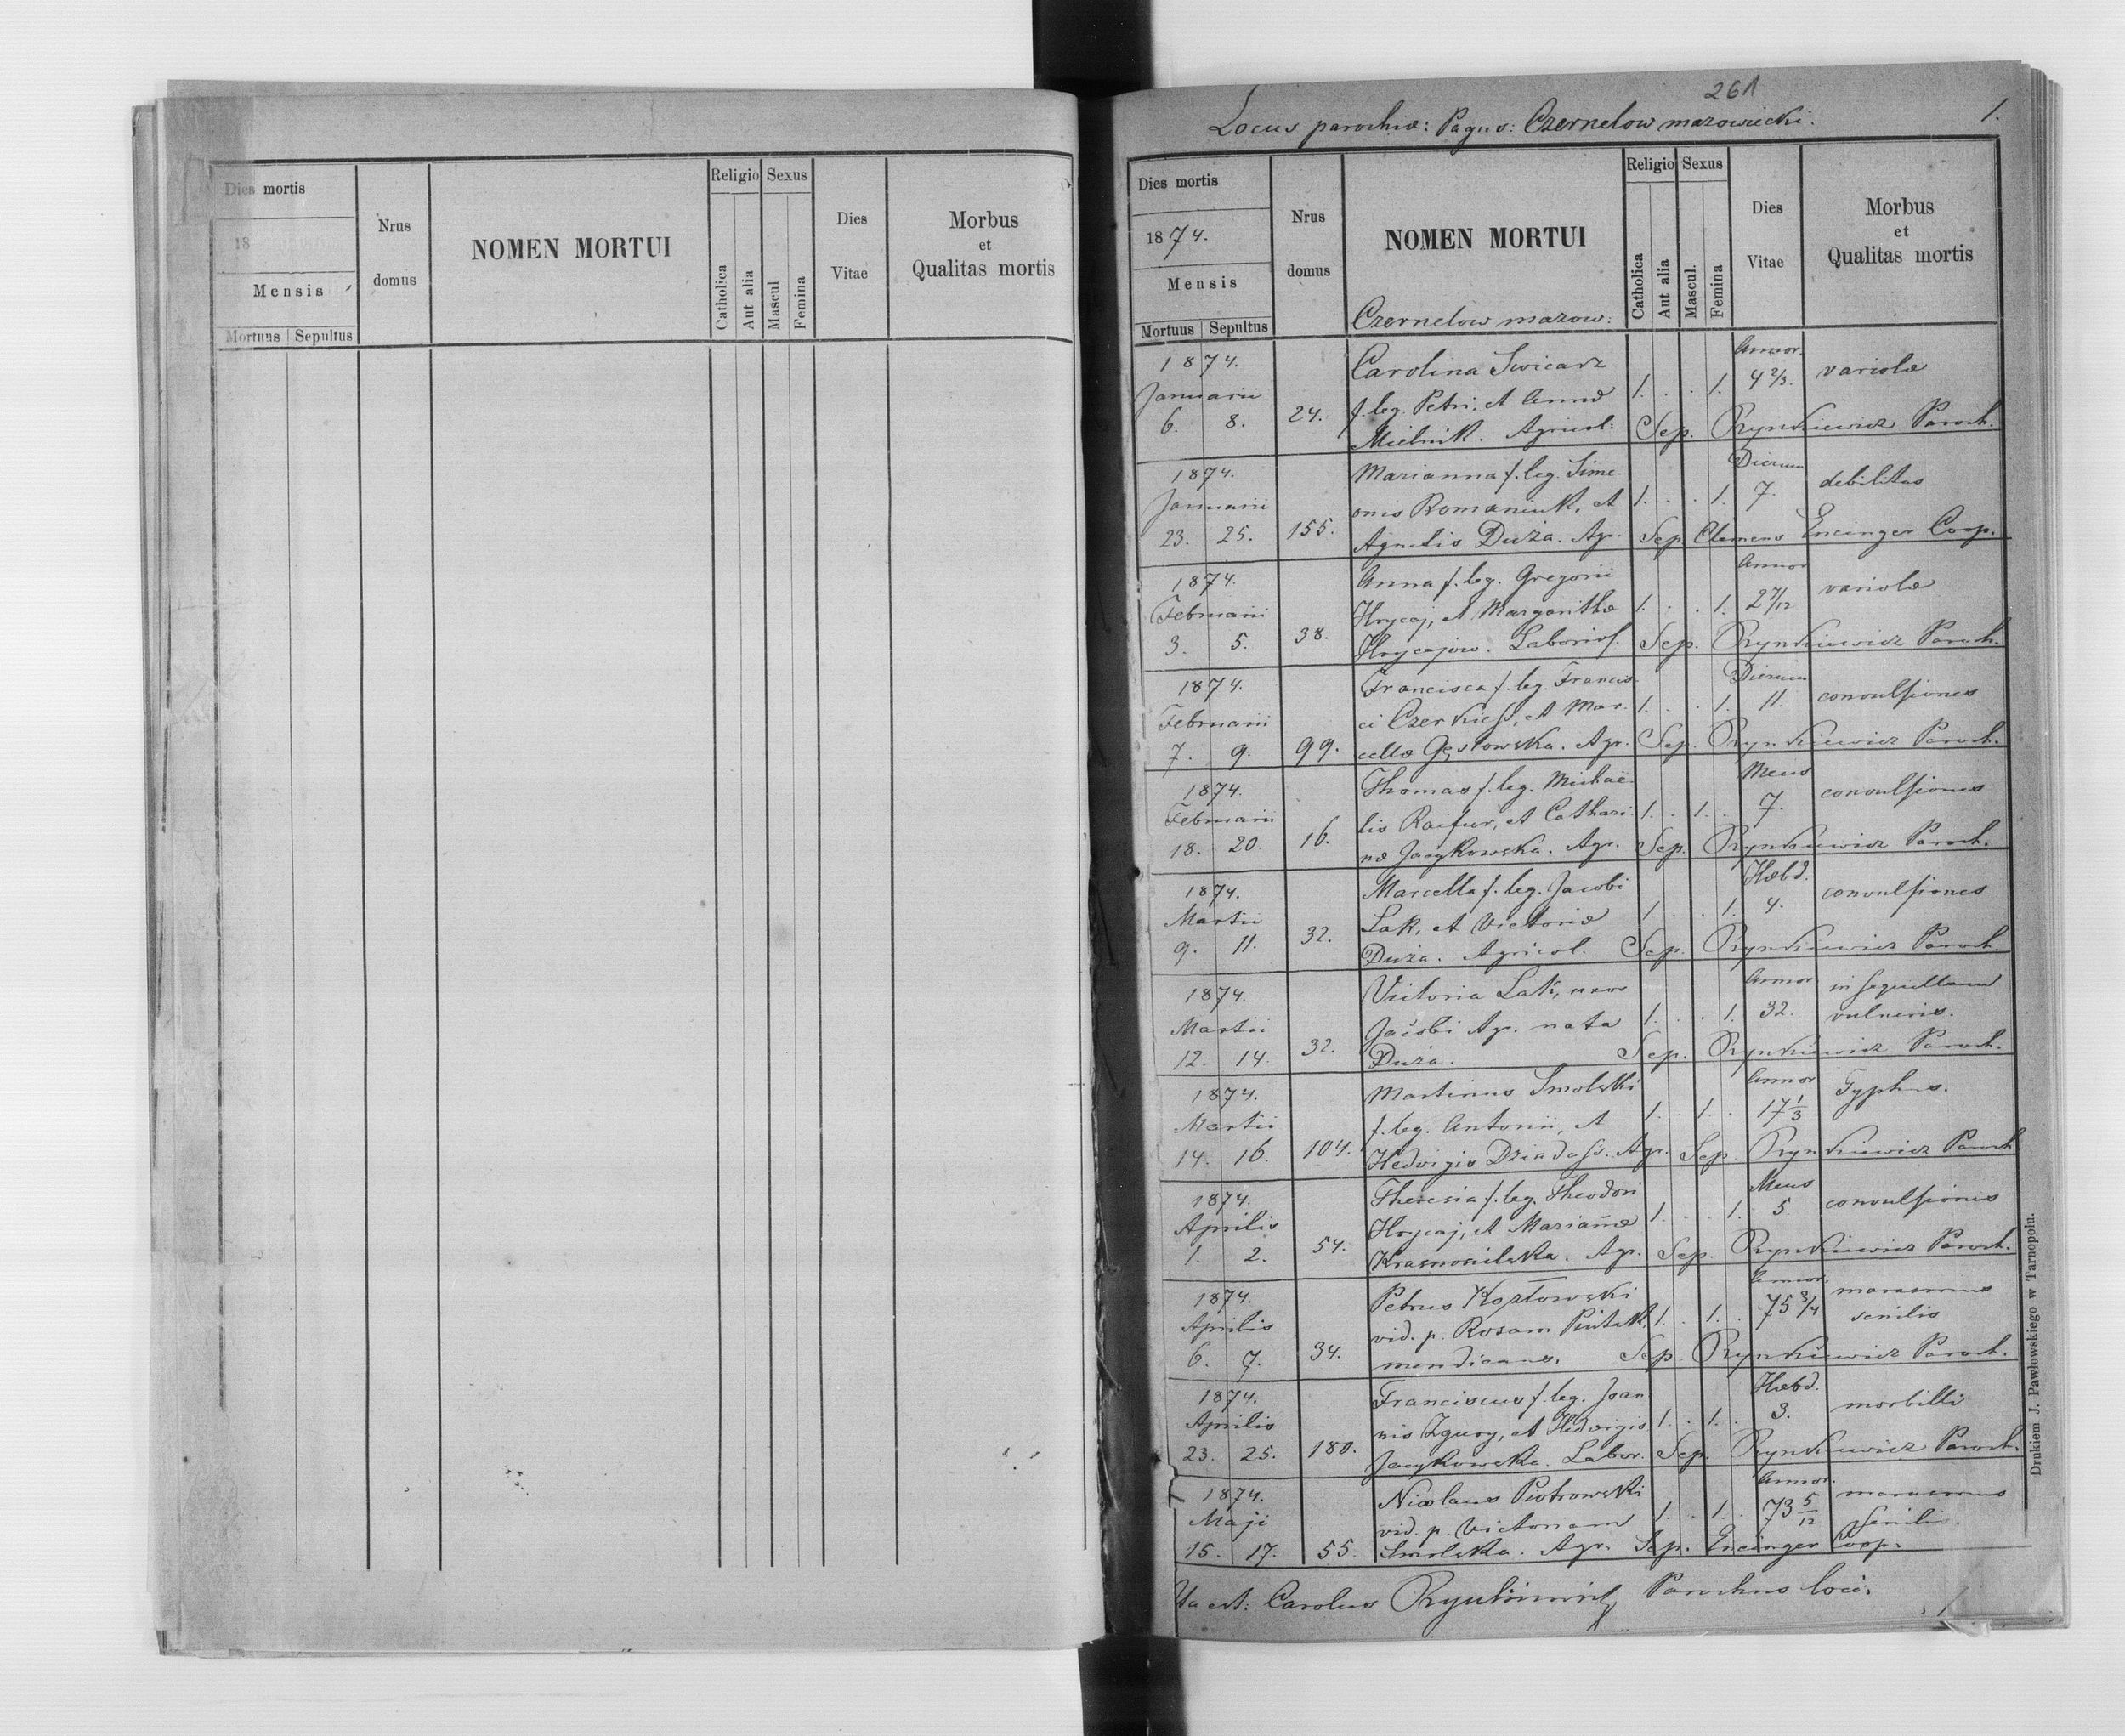 Dies mortis
18
Mensis
Mortuus Sepultus
Nrus
domus
NOMEN MORTUI
Religio Sexus
Catholica
Aut alia
Mascul
Femina
Dies
Vitae
Morbus
et
Qualitas mortis
261
Locus parochiæ: Pagus: Czernelow mazowiecki. 1.
Dies mortis
1874.
Mensis
Mortuus Sepultus
Nrus
domus
NOMEN MORTUI
Czernelow mazow:
Religio Sexus
Catholica
Aut alia
Mascul.
Femina
Dies
Vitae
Morbus
et
Qualitas mortis
1874. Carolina Swicarz Annor.
Januarii f. leg. Petri, et Annæ 1. . . 1. 4 2/3. variolæ
6. 8. 24. Mielnik. Agricol: Sep. Rynkiewicz Paroch.
1874. Marianna f. leg. Sime- Dierum
Januarii onis Romaniuk, et 1. . . 1. 7. debilitas
23. 25. 155. Agnetis Duża. Agr. Sep. Clemens Encinger Coop.
1874. Anna f. leg. Gregorii Annor
Februarii Hrycaj, et Margarithæ 1. . . 1. 2 7/12 variolæ
3. 5. 38. Hrycajow. Laborios. Sep. Rynkiewicz Paroch.
1874. Francisca f. leg. Francis- Dierum
Februarii ci Czerkies, et Mar- 1. . . 1. 11. convulsiones
7. 9. 99. cellæ Gęstowska. Agr. Sep. Rynkiewicz Paroch.
1874. Thomas f. leg. Michaë- Mens
Februarii lis Raifur, et Cathari- 1. . 1. . 7. convulsiones
18. 20. 16. næ Jacykowska. Agr. Sep. Rynkiewicz Paroch.
1874. Marcella f. leg. Jacobi Hebd.
Martii Lak, et Victoriæ 1. . . 1. 4. convulsiones
9. 11. 32. Duża. Agricol. Sep. Rynkiewicz Paroch.
1874. Victoria Lak, uxor Annor in sequellam
Martii Jacobi Agr. nata 1. . . 1. 32. vulneris.
12. 14. 32. Duża. Sep. Rynkiewicz Paroch.
1874. Martinus Smolski Annor Typhus.
Martii f. leg. Antonii, et 1. . 1. . 17 1/3
14. 16. 104. Hedvigis Agr. Sep. Rynkiewicz Paroch.
1874. Theresia f. leg. Theodori Mens
Aprilis Hrycaj, et Mariañæ 1. . . 1. 5 convulsiones
1. 2. 54. Krasnosielska. Agr. Sep. Rynkiewicz Paroch.
1874. Petrus Kozłowski Annor. marasmus
Aprilis vid. p. Rosam 1. . 1. . 75 3/4 senilis
6. 7. 34. mendicans. Sep. Rynkiewicz Paroch.
1874. Franciscus f. leg. Joan- Hebd.
Aprilis nis Zgury, et Hedvigis 1. . 1. . 3. morbilli
23. 25. 180. Jacykowska. Labor. Sep. Rynkiewicz Paroch.
1874. Nicolaus Piotrowski Annor. marasmus
Maji vid. p. Victoriam 1. . 1. . 73 5/12 senilis.
15. 17. 55. Smolska. Agr. Sep. Encinger Coop.
Ita est: Carolus Rynkiewicz Parochus loci.
Drukiem J. Pawłowskiego w Tarnopolu.